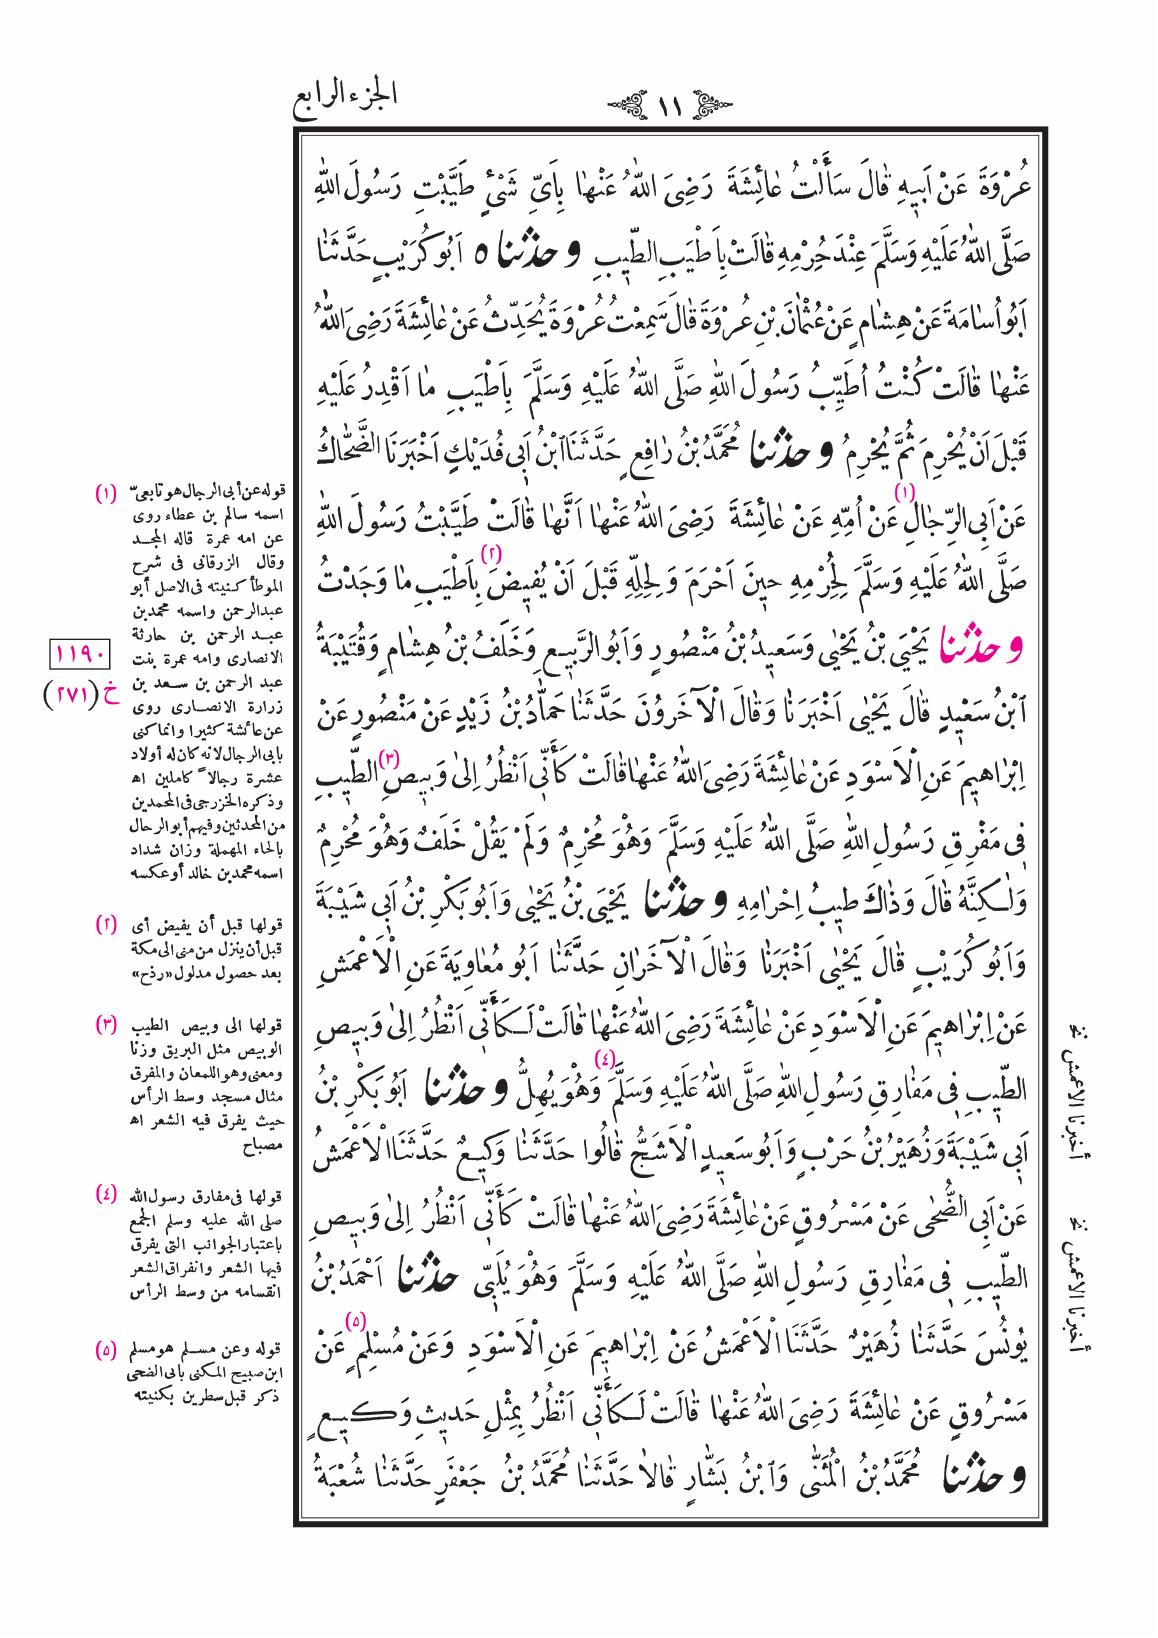 الجزء الرابع
١١
عُرْوَةَ عَنْ اَبيهِ قَالَ سَأَلْتُ عَائِشَةَ رَضِىَ اللهُ عَنْهَا بِاَىِّ شَىْءٍ طَيَّبْتِ رَسُولَ اللهِ
صَلَّى اللهُ عَلَيْهِ وَسَلَّمَ عِنْدَ حُِرْمِهِ قَالَتْ بِاَطْيَبِ الطّيبِ و حدثنا ٥ اَبُو كُرَيْبٍ حَدَّثَنَا
اَبُو اُسَامَةَ عَنْ هِشَامٍ عَنْ عُثْمَانَ بْنِ عُرْوَةَ قَالَ سَمِعْتُ عُرْوَةَ يُحَدِّثُ عَنْ عَائِشَةَ رَضِىَ اللهُ
عَنْهَا قَالَتْ كُنْتُ اُطَيِّبُ رَسُولَ اللهِ صَلَّى اللهُ عَلَيْهِ وَسَلَّمَ بِاَطْيَبِ مَا اَقْدِرُ عَلَيْهِ
قَبْلَ اَنْ يُحْرِمَ ثُمَّ يُحْرِمُ و حدثنا مُحَمَّدُ بْنُ رَافِعٍ حَدَّثَنَا ابْنُ اَبى فُدَيْكٍ اَخْبَرَنَا الضَّحَّاكُ
عَنْ اَبِى الرِّجَالِ (١) عَنْ اُمِّهِ عَنْ عَائِشَةَ رَضِىَ اللهُ عَنْهَا اَنَّهَا قَالَتْ طَيَّبْتُ رَسُولَ اللهِ
صَلَّى اللهُ عَلَيْهِ وَسَلَّمَ لِحُِرْمِهِ حينَ اَحْرَمَ وَلِحِلِّهِ قَبْلَ اَنْ يُفيضَ (٢) بِاَطْيَبِ مَا وَجَدْتُ
و حدثنا يَحْيَى بْنُ يَحْيٰى وَسَعيدُ بْنُ مَنْصُورٍ وَاَبُو الرَّبيعِ وَخَلَفُ بْنُ هِشَامٍ وَقُتَيْبَةُ
ابْنُ سَعيدٍ قَالَ يَحْيٰى اَخْبَرَنَا وَقَالَ الْآخَرُونَ حَدَّثَنَا حَمَّادُ بْنُ زَيْدٍ عَنْ مَنْصُورٍ عَنْ
اِبْرَاهيمَ عَنِ الْاَسْوَدِ عَنْ عَائِشَةَ رَضِىَ اللهُ عَنْهَا قَالَتْ كَأَنّى اَنْظُرُ اِلىٰ وَبيصِ (٣) الطّيبِ
فى مَفْرِقِ رَسُولِ اللهِ صَلَّى اللهُ عَلَيْهِ وَسَلَّمَ وَهُوَ مُحْرِمٌ وَلَمْ يَقُلْ خَلَفٌ وَهُوَ مُحْرِمٌ
وَلٰكِنَّهُ قَالَ وَذَاكَ طيبُ اِحْرَامِهِ و حدثنا يَحْيَى بْنُ يَحْيٰى وَاَبُو بَكْرِ بْنُ اَبى شَيْبَةَ
وَاَبُو كُرَيْبٍ قَالَ يَحْيٰى اَخْبَرَنَا وَقَالَ الْآخَرَانِ حَدَّثَنَا اَبُو مُعَاوِيَةَ عَنِ الْاَعْمَشِ
عَنْ اِبْرَاهيمَ عَنِ الْاَسْوَدِ عَنْ عَائِشَةَ رَضِىَ اللهُ عَنْهَا قَالَتْ لَكَأَنّى اَنْظُرُ اِلىٰ وَبيصِ
الطّيبِ فى مَفَارِقِ رَسُولِ اللهِ صَلَّى اللهُ عَلَيْهِ وَسَلَّمَ (٤) وَهُوَ يُهِلُّ و حدثنا اَبُو بَكْرِ بْنُ
اَبى شَيْبَةَ وَزُهَيْرُ بْنُ حَرْبٍ وَاَبُو سَعيدٍ الْاَشَجُّ قَالُوا حَدَّثَنَا وَكيعٌ حَدَّثَنَا الْاَعْمَشُ
عَنْ اَبِى الضُّحٰى عَنْ مَسْرُوقٍ عَنْ عَائِشَةَ رَضِىَ اللهُ عَنْهَا قَالَتْ كَأَنّى اَنْظُرُ اِلىٰ وَبيصِ
الطّيبِ فى مَفَارِقِ رَسُولِ اللهِ صَلَّى اللهُ عَلَيْهِ وَسَلَّمَ وَهُوَ يُلَبّى حدثنا اَحْمَدُ بْنُ
يُونُسَ حَدَّثَنَا زُهَيْرٌ حَدَّثَنَا الْاَعْمَشُ عَنْ اِبْرَاهيمَ عَنِ الْاَسْوَدِ وَعَنْ مُسْلِمٍ (٥) عَنْ
مَسْرُوقٍ عَنْ عَائِشَةَ رَضِىَ اللهُ عَنْهَا قَالَتْ لَكَأَنّى اَنْظُرُ بِمِثْلِ حَديثِ وَكيعٍ
و حدثنا مُحَمَّدُ بْنُ الْمُثَنّٰى وَابْنُ بَشَّارٍ قَالَا حَدَّثَنَا مُحَمَّدُ بْنُ جَعْفَرٍ حَدَّثَنَا شُعْبَةُ
(١) قوله عن أبى الرجال هو تابعىّ
اسمه سالم بن عطاء روى
عن امه عمرة قاله المجد
وقال الزرقانى فى شرح
الموطأ كنيته فى الاصل أبو
عبدالرحمن واسمه محمد بن
عبد الرحمن بن حارثة
الانصارى وامه عمرة بنت
عبد الرحمن بن سعد بن
زرارة الانصارى روى
عن عائشة كثيرا وانما كنى
بابى الرجال لانه كان له أولاد
عشرة رجالاً كاملين اه
وذكره الخزرجى فى المحمدين
من المحدثين وفيهم أبو الرحال
بالحاء المهملة وزان شداد
اسمه محمد بن خالد أو عكسه
١١٩٠
خ (٢٧١)
(٢) قولها قبل أن يفيض أى
قبل أن ينزل من منى الى مكة
بعد حصول مدلول «رذح»
(٣) قولها الى وبيص الطيب
الوبيص مثل البريق وزنا
ومعنى وهو اللمعان والمفرق
مثال مسجد وسط الرأس
حيث يفرق فيه الشعر اه
مصباح
(٤) قولها فى مفارق رسول الله
صلى الله عليه وسلم الجمع
باعتبار الجوانب التى يفرق
فيها الشعر وانفراق الشعر
انقسامه من وسط الرأس
(٥) قوله وعن مسلم هو مسلم
ابن صبيح المكنى بابى الضحى
ذكر قبل سطرين بكنيته
أخبرنا الاعمش نخ
أخبرنا الاعمش نخ